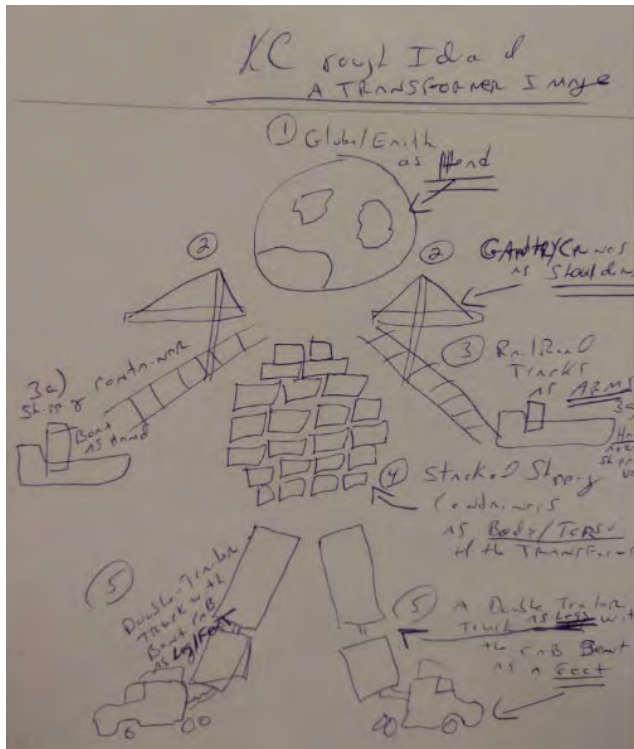 KC rough Idea of
A TRANSFORMER Image
① Globe/Earth
as Head
②
②
GANTRY CRANES
as Shoulders
③ Rail Road
Tracks
as ARMS
3a)
Shipping container
Boat
as hand
3a
④ Stacked Shipping
Containers
as Body/Torso
of the TRANSFORMER
⑤
Double-Trailer
Truck with
Bent CAB
as Leg/Foot
⑤ A Double Trailer
Truck as Legs with
the CAB Bent
as a Feet